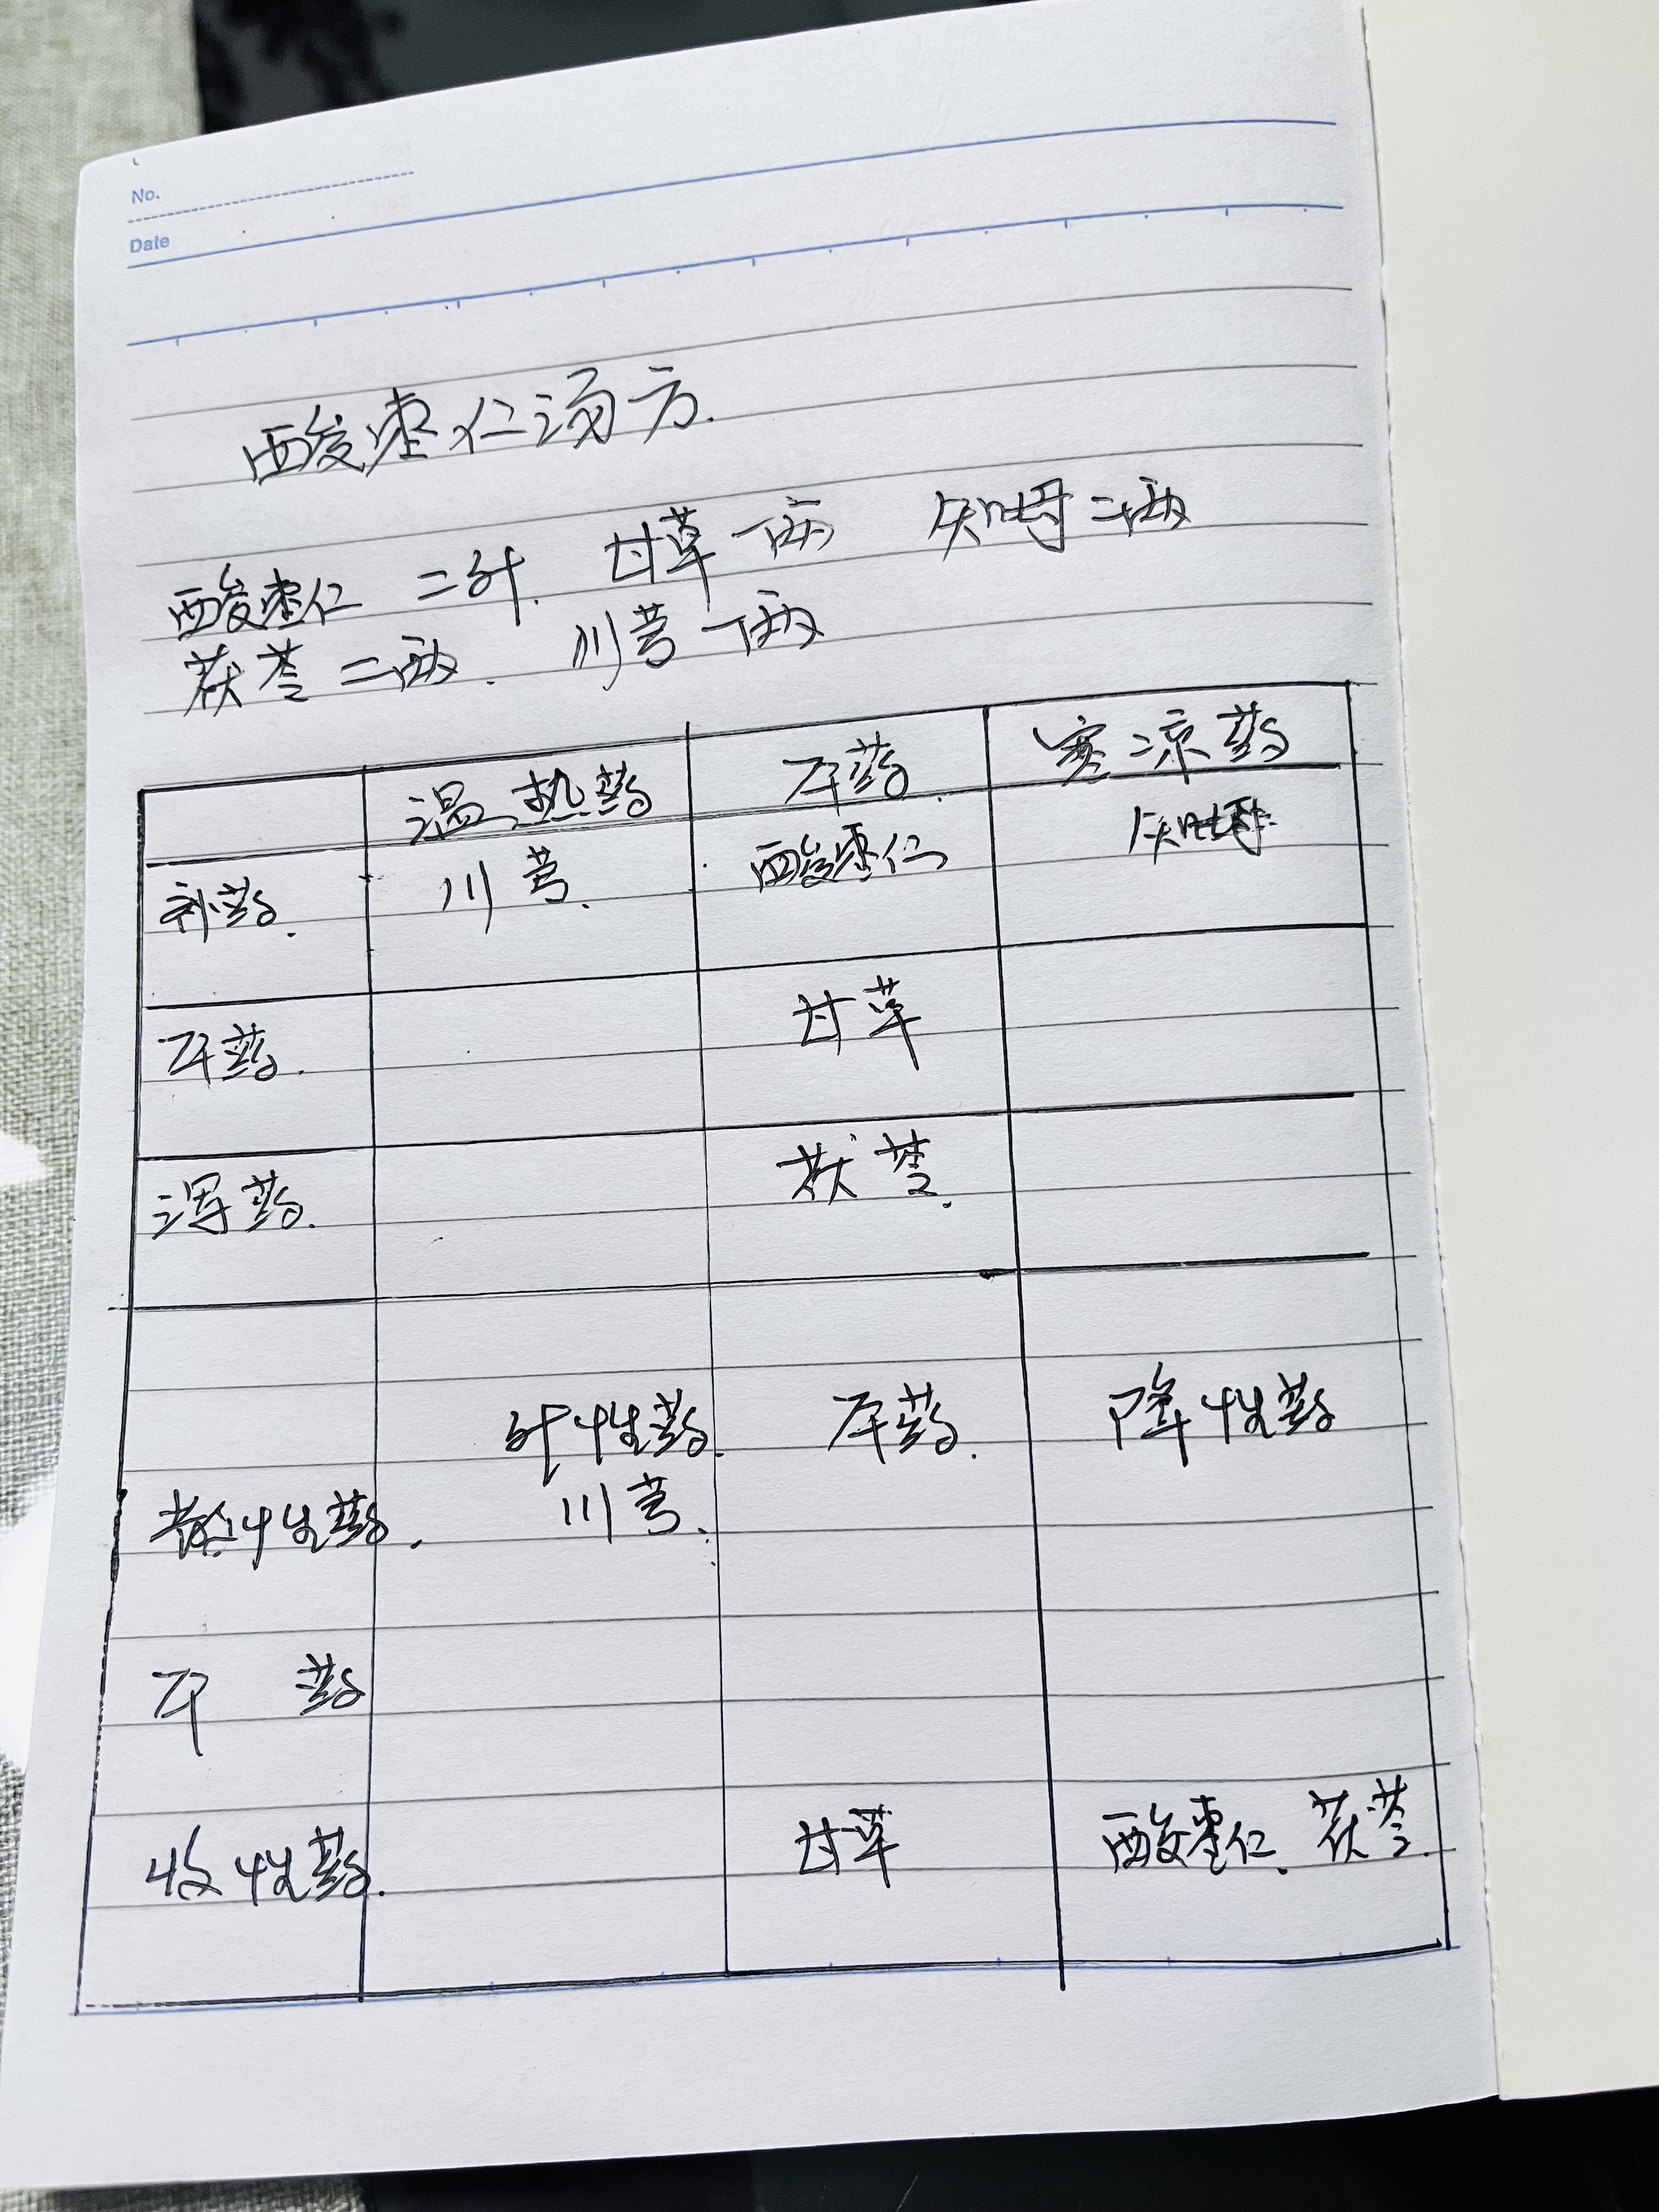 No.
Date
酸枣仁汤方.
酸枣仁 二升. 甘草一两 知母二两
茯苓二两. 川芎一两
温热药 平药. 寒凉药
补药. 川芎. 酸枣仁 知母
平药. 甘草
泻药. 茯苓.
升性药. 平药. 降性药
散性药. 川芎.
平 药
收性药. 甘草 酸枣仁. 茯苓.